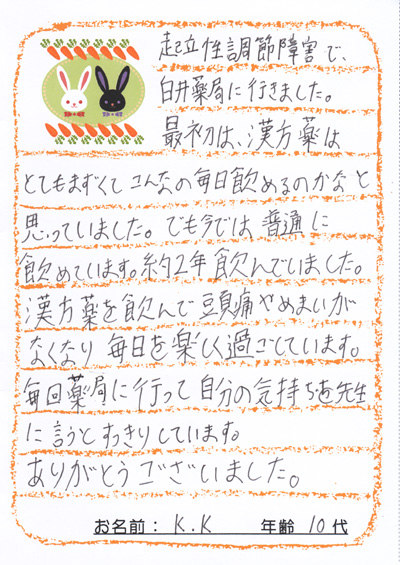 起立性調節障害で、
臼井薬局に行きました。
最初は、漢方薬は
とてもまずくてこんなの毎日飲めるのかなと
思っていました。でも今では普通に
飲めています。約2年飲んでいました。
漢方薬を飲んで頭痛やめまいが
なくなり毎日を楽しく過ごしています。
毎回薬局に行って自分の気持ちを先生
に言うとすっきりしています。
ありがとうございました。
お名前: K.K 年齢 10代